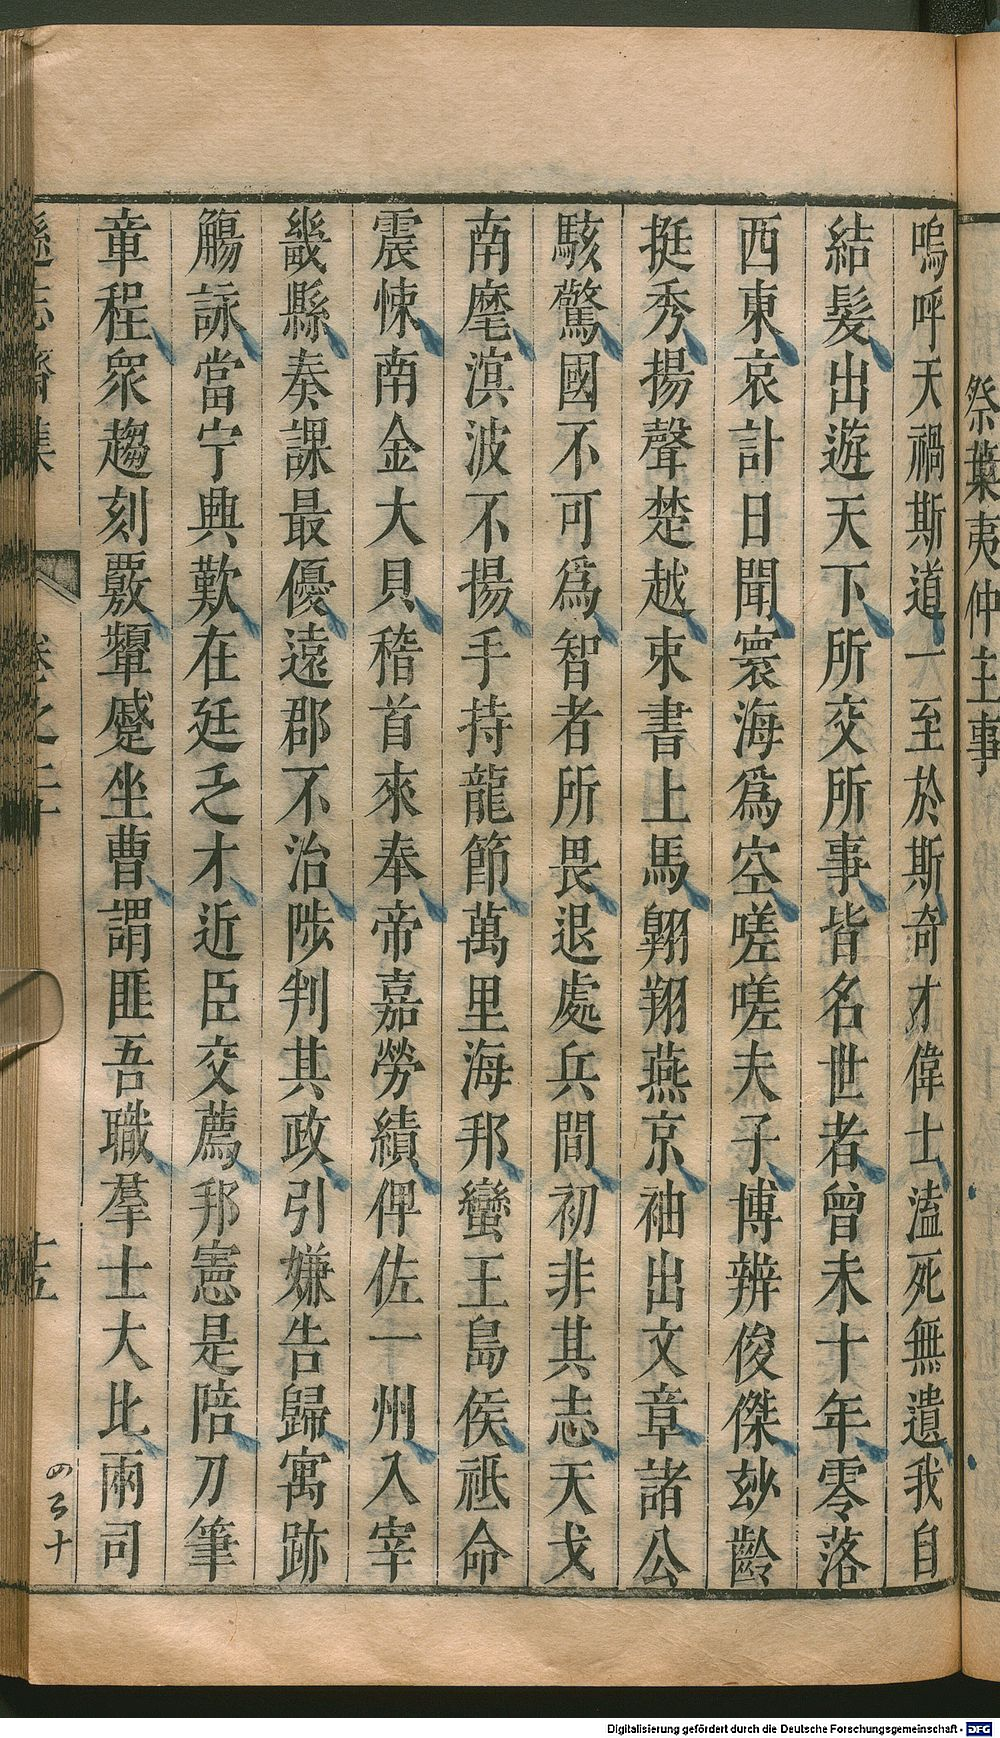 祭葉夷仲主事
嗚呼天禍斯道一至於斯奇才偉士溘死無遺我自
結髮出遊天下所交所事皆名世者曾未十年零落
西東哀計日聞寰海爲空嗟嗟夫子博辨俊傑玅齡
挺秀揚聲楚越束書上馬翱翔燕京袖出文章諸公
駭驚國不可爲智者所畏退處兵間初非其志天戈
南麾溟波不揚手持龍節萬里海邦蠻王島侯祗命
震悚南金大貝稽首來奉帝嘉勞績俾佐一州入宰
畿縣奏課最優遠郡不治陟判其政引嫌告歸寓跡
觴詠當宁興歎在廷乏才近臣交薦邦憲是陪刀筆
章程衆趨刻覈顰蹙坐曹謂匪吾職羣士大比兩司
遜志齋集
卷之二十
十五
四百十
Digitalisierung gefördert durch die Deutsche Forschungsgemeinschaft - DFG